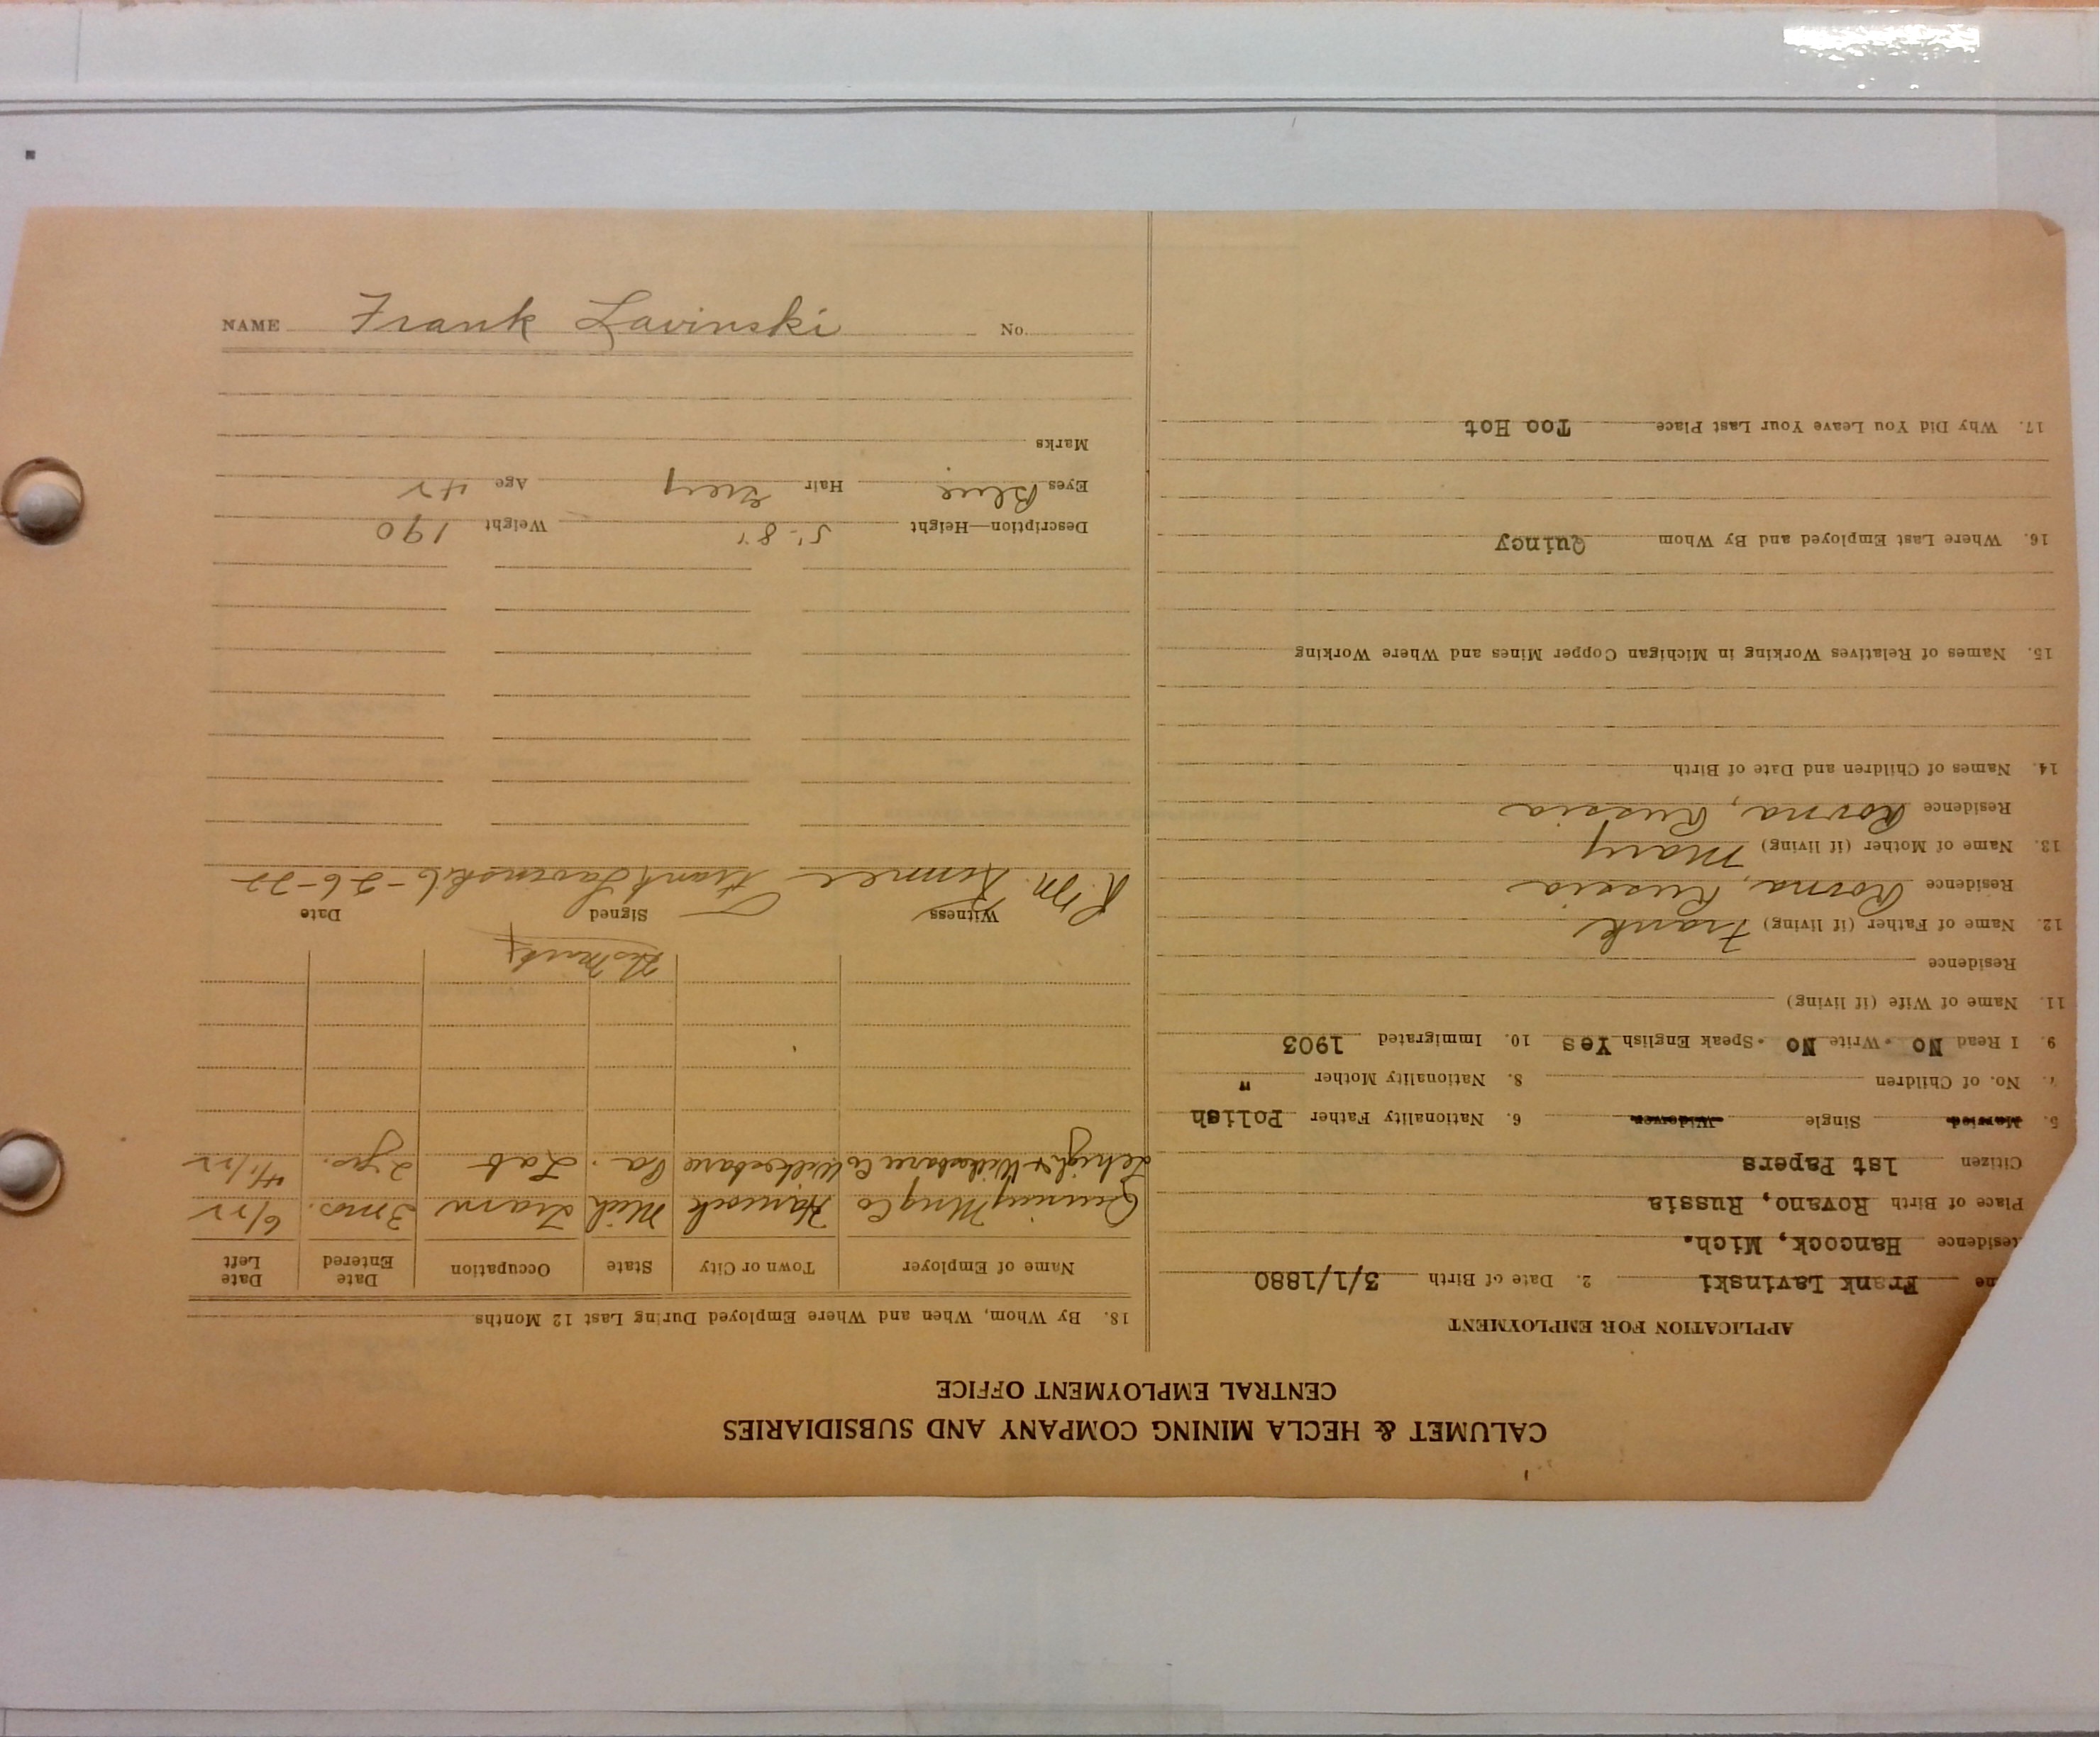 CALUMET & HECLA MINING COMPANY AND SUBSIDIARIES
CENTRAL EMPLOYMENT OFFICE
APPLICATION FOR EMPLOYMENT
me Frank Lavinski 2. Date of Birth 3/1/1880
Residence Hancock, Mich.
Place of Birth Rovano, Russia
Citizen 1st Papers
5. Married Single Widower 6. Nationality Father Polish
7. No. of Children 8. Nationality Mother "
9. I Read No Write No Speak English Yes 10. Immigrated 1903
11. Name of Wife (if living)
Residence
12. Name of Father (if living) Frank
Residence Rovna, Russia
13. Name of Mother (if living) Mary
Residence Rovna, Russia
14. Names of Children and Date of Birth
15. Names of Relatives Working in Michigan Copper Mines and Where Working
16. Where Last Employed and By Whom Quincy
17. Why Did You Leave Your Last Place Too Hot
18. By Whom, When and Where Employed During Last 12 Months
Name of Employer Town or City State Occupation Date Entered Date Left
Quincy Mng Co Hancock Mich Tram 3 mos. 6/22
Lehigh & Wilksbarre Co Wilksbarre Pa. Lab 2 yrs. 4/1/22
His Mark
Witness Signed Date
R.M. Frank Lavinski 6-26-22
Description—Height 5'-8" Weight 190
Eyes Blue Hair Grey Age 42
Marks
NAME Frank Lavinski No.